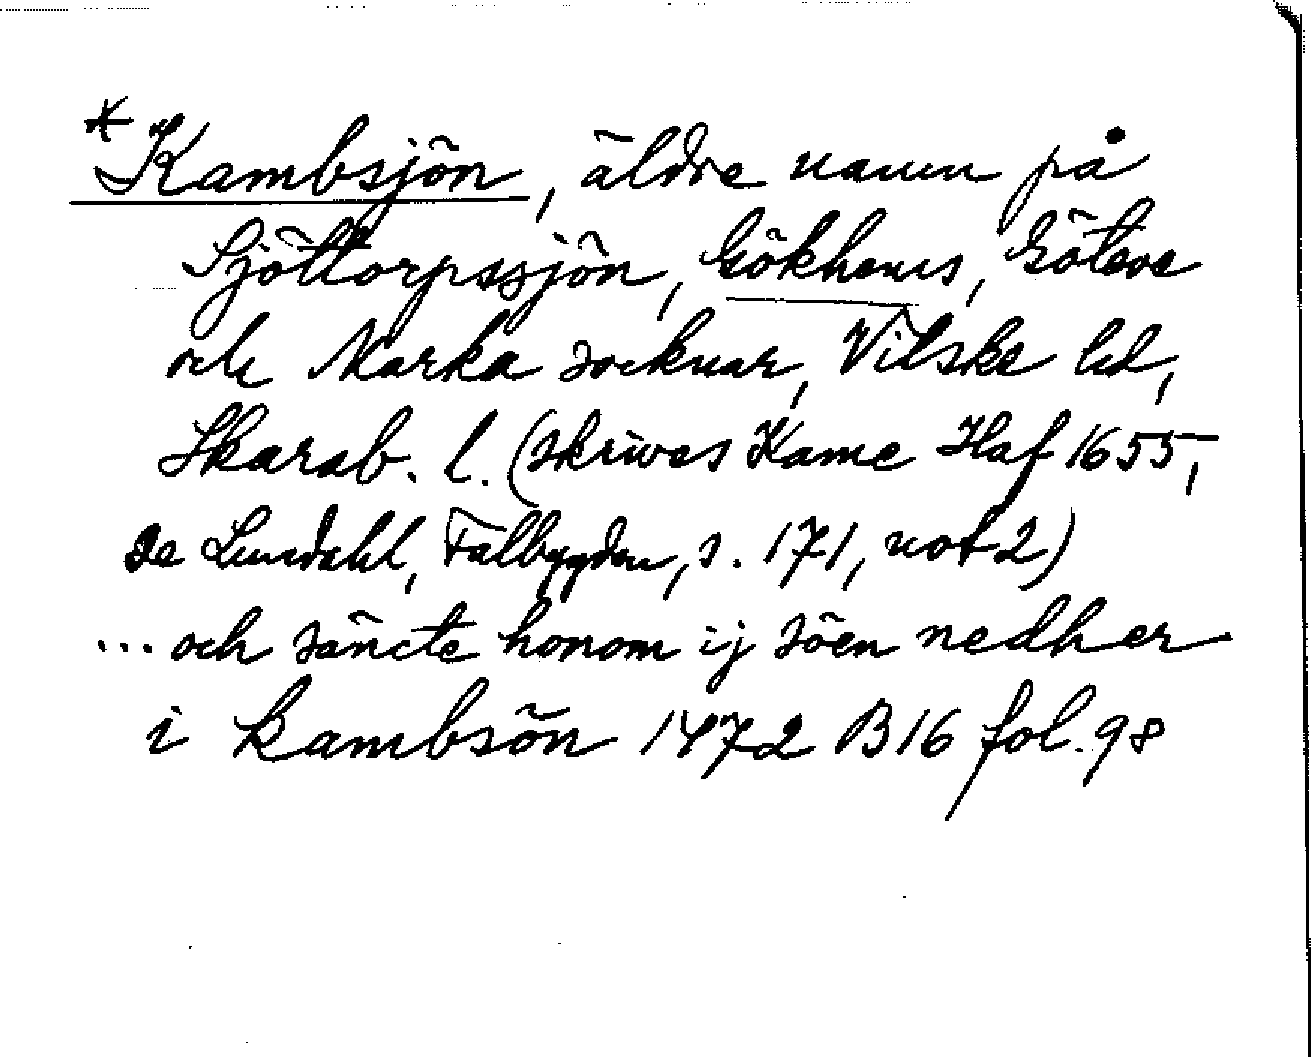 *Kambsjön, äldre namn på
Sjöttorpssjön, Gökhems, Göteve
och Marka socknar, Vilske hd,
Skarab. l. (skrives Kame Haf 1655,
se Lundahl, Falbygden, s. 171, not 2)
... och säncte honom ij söen nedher
i kambsön 1472 B16 fol. 98